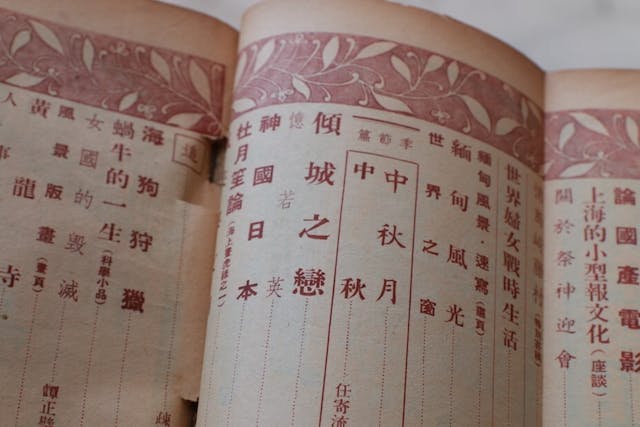 論國產電影
上海的小型報文化（座談）
關於祭神迎會
世界婦女戰時生活
緬甸風景·速寫（畫頁）
緬甸風光
世界之窗
季節篇
中秋月
中秋 任寄流
傾城之戀
憶若英
神國日本
杜月笙論（海上畫虎錄之一）
追
海狗狩獵
蝸牛的一生（科學小品）
女國的毀滅 譚正璧
風景版畫（畫頁）
黃龍寺
人事